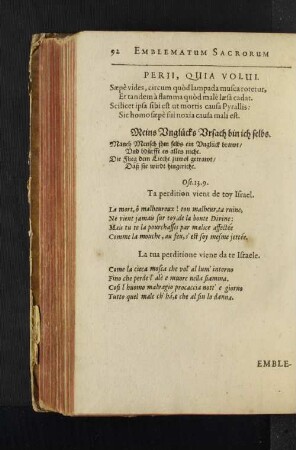 92 EMBLEMATUM SACRORUM
PERII, QUIA VOLUI.
Sæpè vides, circum quòd lampada musca rotetur,
Et tandem à flamma quòd malè læsa cadat.
Scilicet ipsa sibi est ut mortis causa Pyrallis:
Sic homo sæpè sui noxia causa mali est.
Meins Unglücks Ursach bin ich selbs.
Manch Mensch ihm selbs ein Unglück brawt/
Und dürfft es alles nicht.
Die Flieg dem Liecht zuviel getrawt/
Daß sie wirdt hingericht.
Ose.13.9.
Ta perdition vient de toy Israel.
La mort, ô malheureux! ton malheur, ta ruine,
Ne vient jamais sur toy de la bonte Divine:
Mais tu te la pourchasses par malice affettée
Comme la mouche, au feu, s'est soy mesme jettée.
La tua perditione viene da te Israele.
Come la cieca mosca che vol' al lum' intorno
Fino che perde l' ale e muore nella fiamma.
Così l' huomo malvagio procaccia nott' e giorno
Tutto quel male ch' há, e che al fin lo danna.
EMBLE-